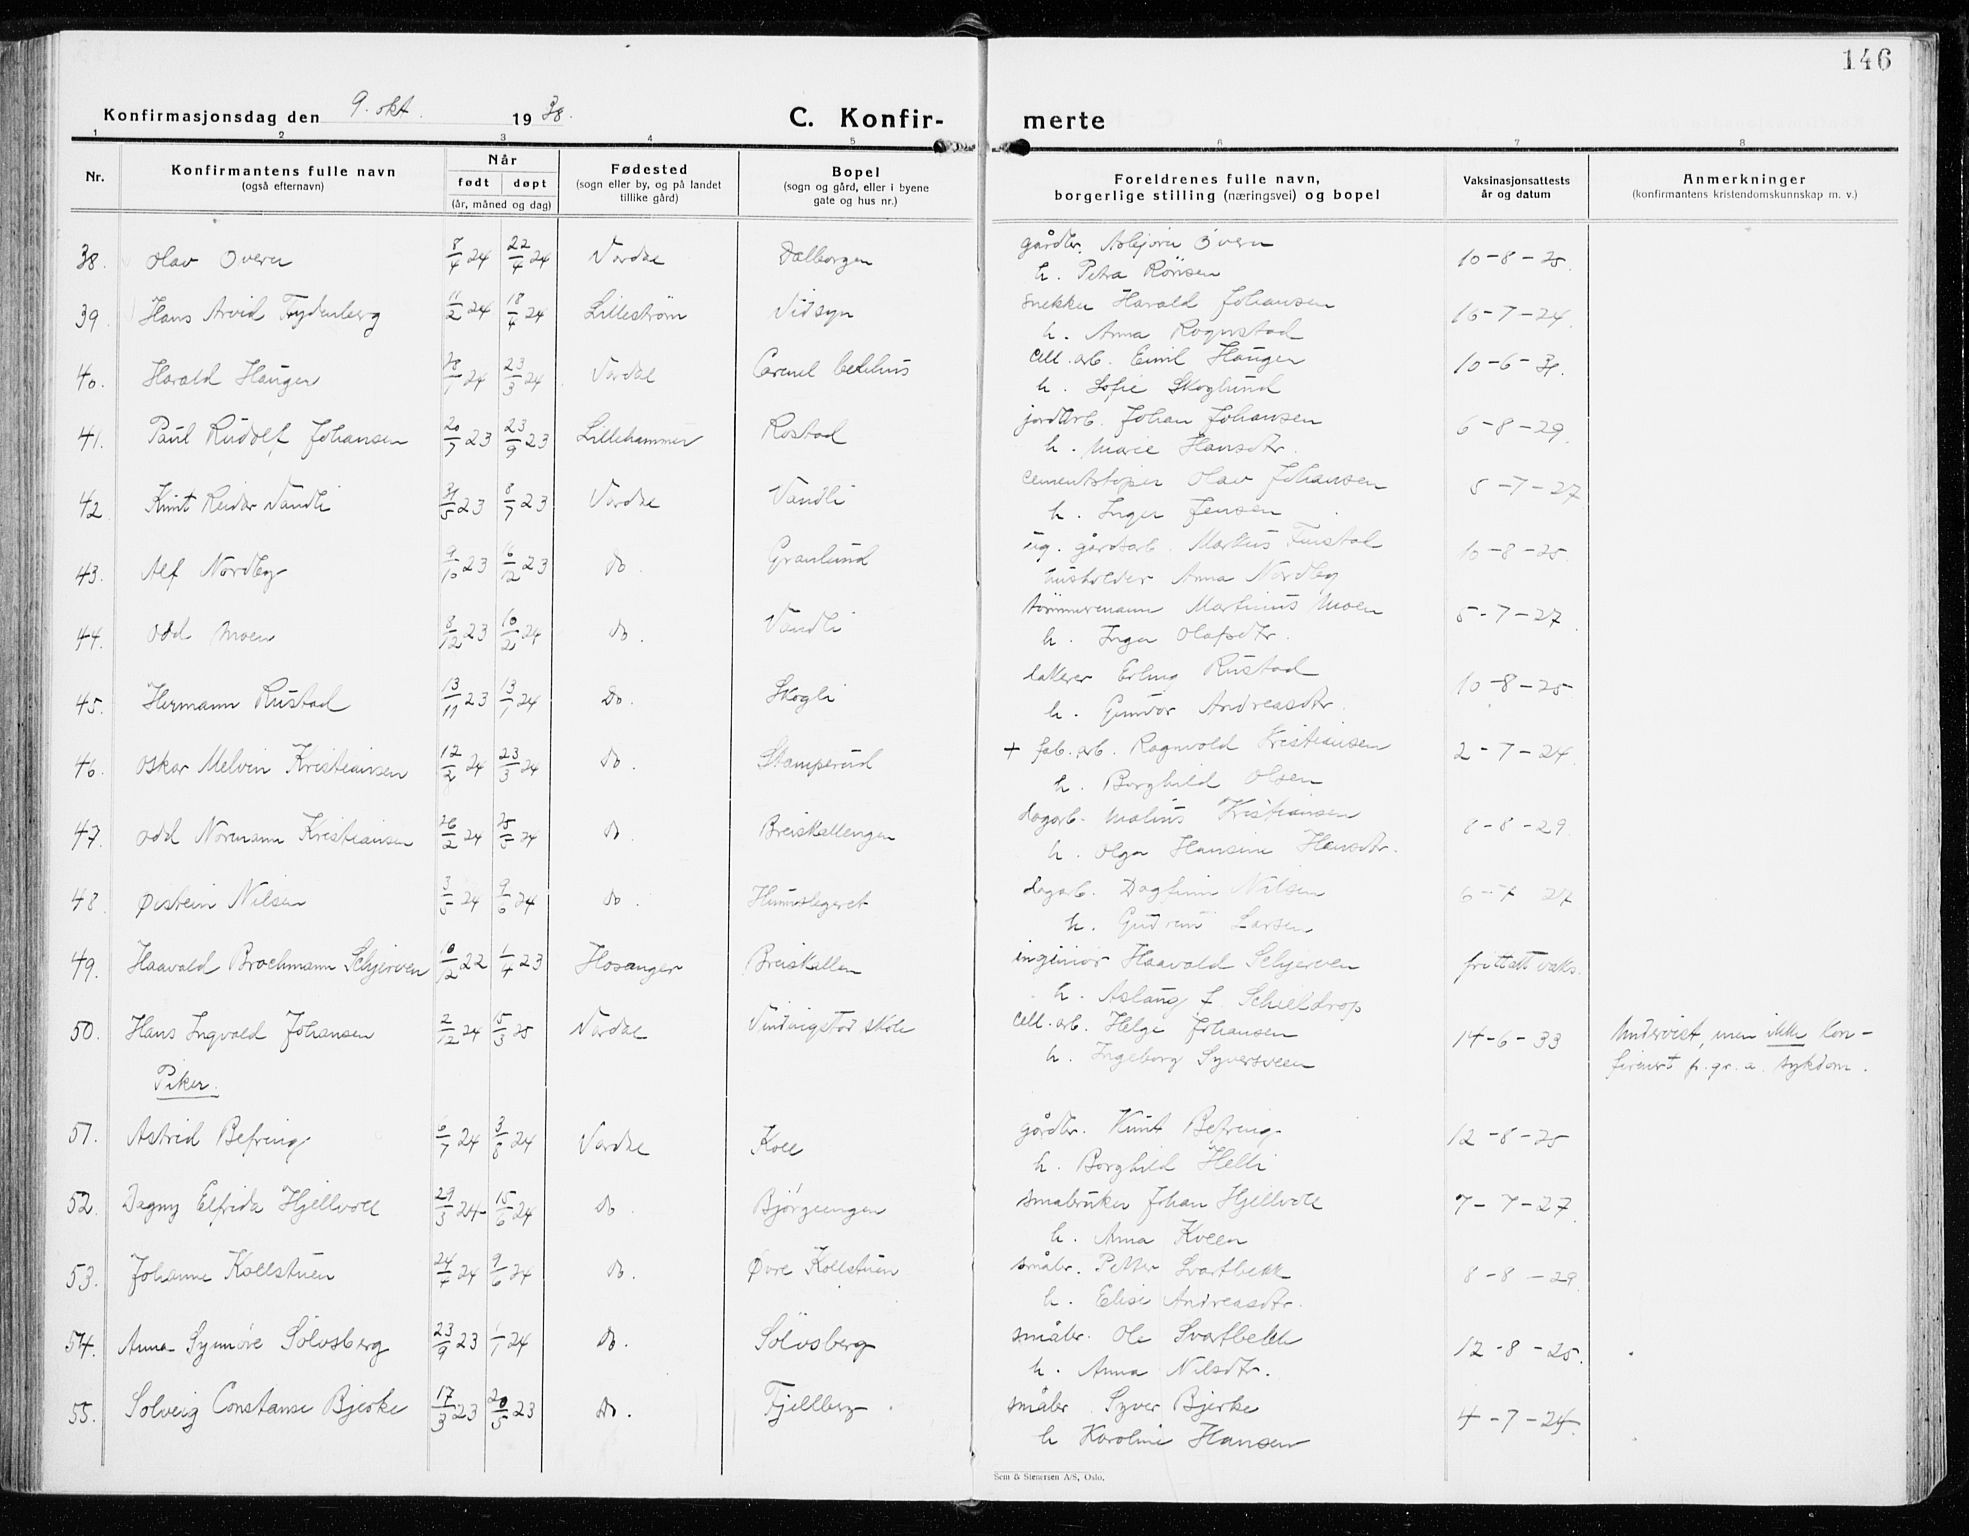 146
Konfirmasjonsdag den 9. okt. 1938.
C. Konfir-
merte
1 2 3 4 5 6 7 8
Nr.
Konfirmantens fulle navn
(også efternavn)
Når
født døpt
(år, måned og dag)
Fødested
(sogn eller by, og på landet
tillike gård)
Bopel
(sogn og gård, eller i byene
gate og hus nr.)
Foreldrenes fulle navn,
borgerlige stilling (næringsvei) og bopel
Vaksinasjonsattests
år og datum
Anmerkninger
(konfirmantens kristendomskunnskap m. v.)
38. Olav Øvern 8/4 24 22/4 24 Vardal Dalborgen gårdbr. Asbjørn Øvern 10-8-25.
h. Petra Rönsen
39. Hans Arvid Frydenberg 11/2 24 18/4 24 Lillestrøm Vidsyn snekker Harald Johansen 16-7-24.
h. Anna Rognstad
40. Harald Haugen 28/1 24 23/3 24 Vardal Carmel bedehus cell. arb. Emil Haugen 10-6-31.
h. Sofie Skoglund
41. Paul Rudolf Johansen 20/7 23 23/9 23 Lillehammer Rostad jordarb. Johan Johansen 6-8-29.
h. Marie Hansdtr.
42. Knut Reidar Vandli 31/5 23 8/7 23 Vardal Vandli cementstøper Olav Johansen 5-7-27
h. Inger Jensen
43. Alf Nordby 9/10 23 16/12 23 do. Granlund ug. gårdsarb. Markus Furstal 10-8-25.
husholder Anna Nordby
44. Odd Moen 8/12 23 10/2 24 do. Vandli tømmermann Martinius Moen 5-7-27.
h. Inga Olafsdtr.
45. Hermann Rustad 13/11 23 13/1 24 Do. Skogli lakkerer Erling Rustad 10-8-25
h. Gunvor Andreasdtr.
46. Oskar Melvin Kristiansen 12/2 24 23/3 24 do. Stamperud + fab. arb. Ragnvald Kristiansen 2-7-24.
h. Borghild Olsen
47. Odd Normann Kristiansen 26/2 24 25/5 24 do. Breiskallengen dagarb. Malius Kristiansen 8-8-29.
h. Olga Hansine Hansdtr.
48. Øistein Nilsen 3/5 24 9/6 24 do. Hunnslageret dagarb. Dagfinn Nilsen 6-7 27
h. Gudrun Larsen
49. Haavald Brochmann Schjerven 10/12 22 1/4 23 Hosanger Breiskallen ingeniør Haavald Schjerven fritatt vaks.
h. Aslaug f. Schieldrop
50. Hans Ingvald Johansen 2/12 24 15/3 25 Vardal Vindvigstad skole cell. arb. Helge Johansen 14-6-33 Undervist, men ikke kon-
h. Ingeborg Syversveen firmert p. gr. a. sykdom.
Piker.
51. Astrid Befring 6/7 24 3/8 24 Vardal Koll gårdbr. Knut Befring 12-8-25
h. Borghild Helli
52. Dagny Elfrida Hjellvoll 29/3 24 15/6 24 do. Bjørgeengen småbruker Johan Hjellvoll 7-7-27.
h. Anna Kveen
53. Johanne Kollstuen 24/4 24 9/6 24 do. Øvre Kollstuen småbr. Petter Svartbekk 8-8-29
h. Elise Andreasdtr.
54. Anna Synnøve Sölvsberg 23/9 23 1/1 24 do. Sölvsberg småbr. Ole Svartbekk 12-8-25.
h. Anna Nilsdtr.
55. Solveig Constanse Bjerke 17/3 23 20/5 23 do. Fjellberg småbr. Syver Bjerke 4-7-24.
h Karoline Hansen
Sem & Stenersen A/S, Oslo.